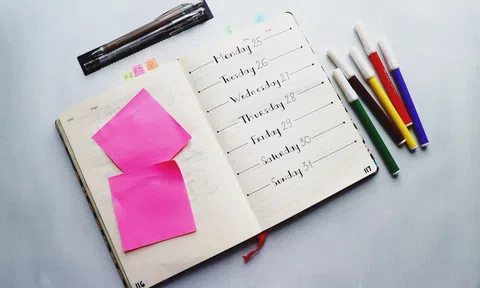 Monday 25
Tuesday 26
Wednesday 27
Thursday 28
Friday 29
Saturday 30
Sunday 31
116
117